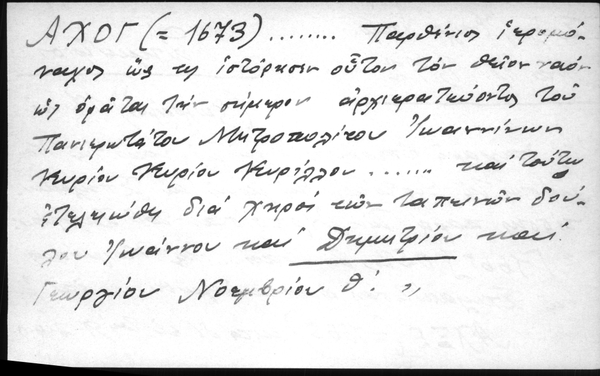 ΑΧΟΓ (= 1673) ........ Παρθένιος ἱερομό-
ναχος ὥς τις ἱστόρησεν οὗτον τόν θεῖον ναόν
ὡς ὁρᾶται τήν σήμερον ἀρχιερατεύοντος τοῦ
Πανιερωτάτου Μητροπολίτου Ἰωαννίνων
Κυρίου Κυρίου Κυρίλλου ....... καί τοῦτο
ἐτελειώθη διά χειρός τῶν ταπεινῶν δού-
λου Ἰωάννου καί Δημητρίου καί
Γεωργίου Νοεμβρίου θ. „